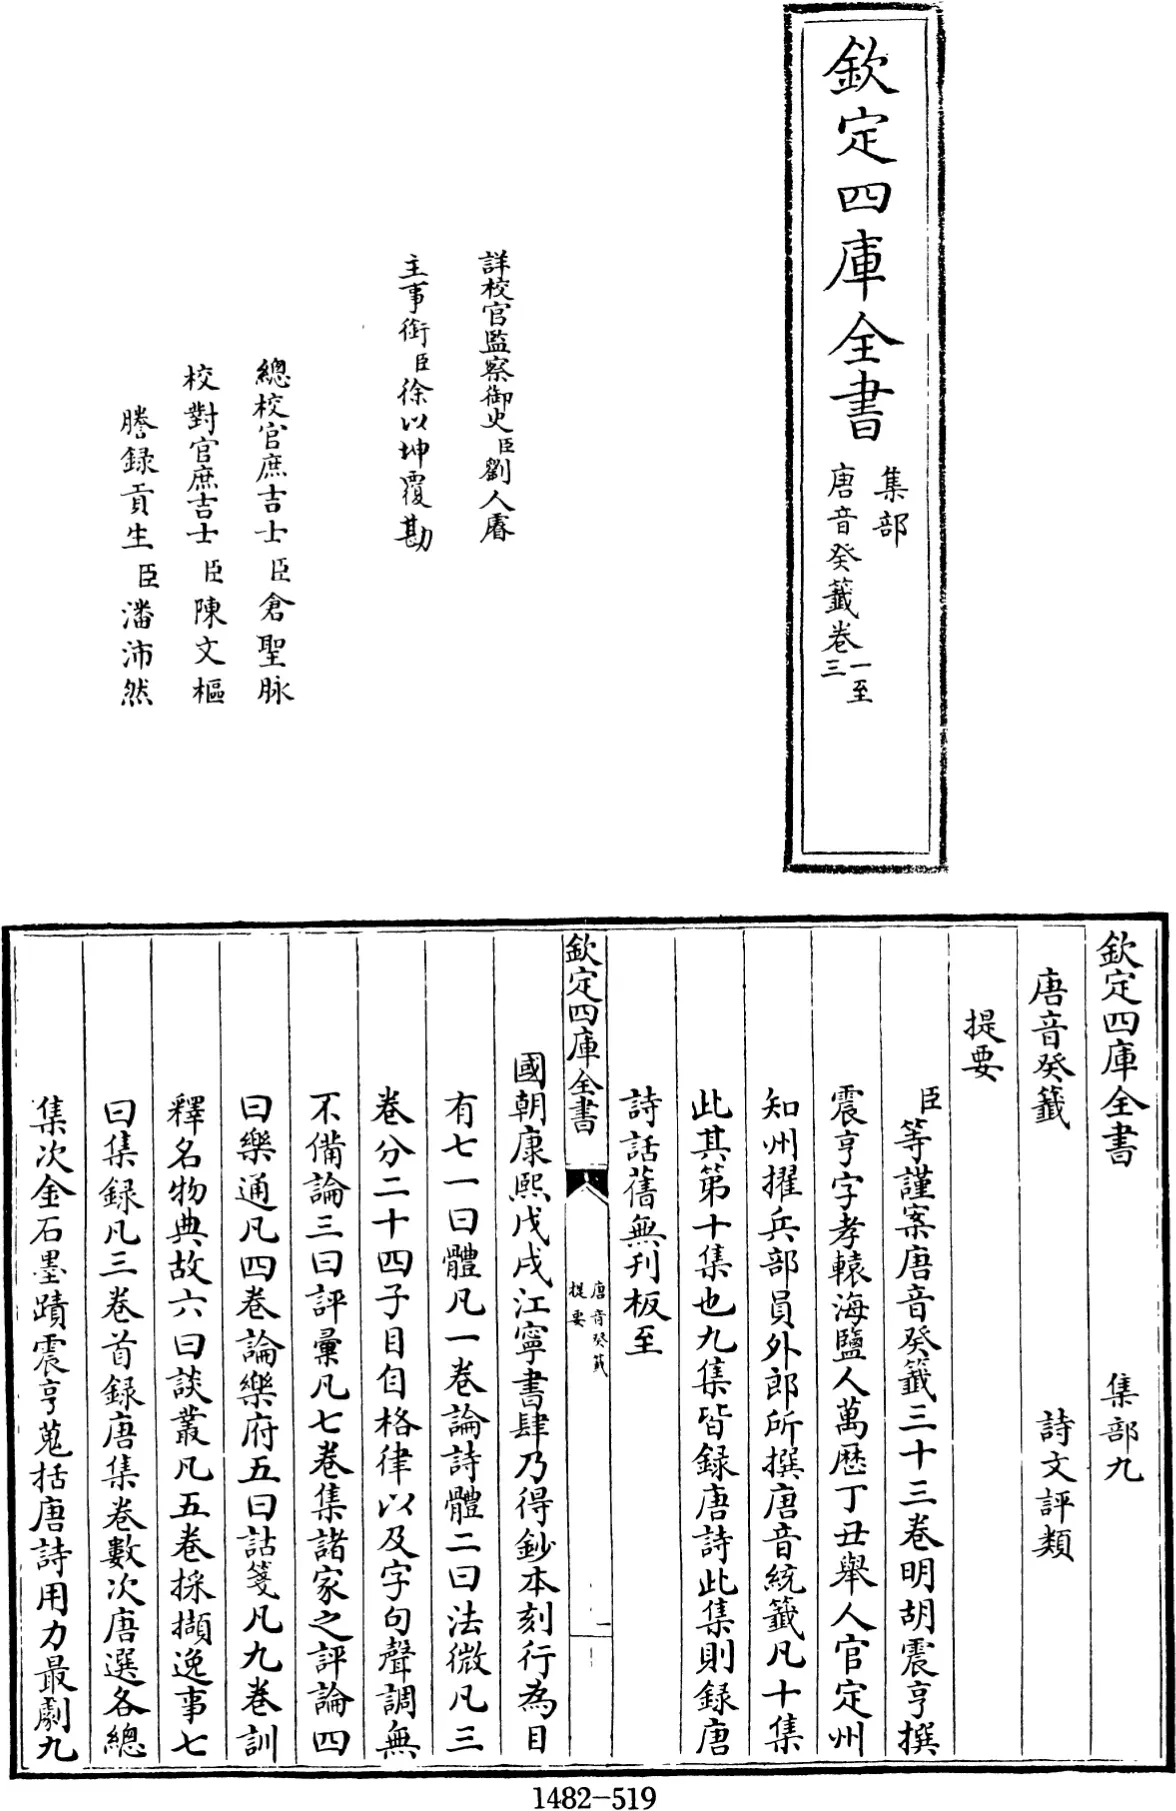 欽定四庫全書
集部
唐音癸籤卷一至三
詳校官監察御史臣劉人睿
主事銜臣徐以坤覆勘
總校官庶吉士臣倉聖脉
校對官庶吉士臣陳文樞
謄録貢生臣潘沛然
欽定四庫全書 集部九
唐音癸籤 詩文評類
提要
臣等謹案唐音癸籤三十三卷明胡震亨撰
震亨字孝轅海鹽人萬歴丁丑舉人官定州
知州擢兵部員外郎所撰唐音統籤凡十集
此其第十集也九集皆録唐詩此集則録唐
詩話舊無刋板至
欽定四庫全書
唐音癸籤
提要
一
國朝康熙戊戌江寧書肆乃得鈔本刻行為目
有七一曰體凡一卷論詩體二曰法微凡三
卷分二十四子目自格律以及字句聲調無
不備論三曰評彙凡七卷集諸家之評論四
曰樂通凡四卷論樂府五曰詁箋凡九卷訓
釋名物典故六曰談叢凡五卷採擷逸事七
曰集録凡三卷首録唐集卷數次唐選各總
集次金石墨蹟震亨蒐括唐詩用力最劇九
1482-519